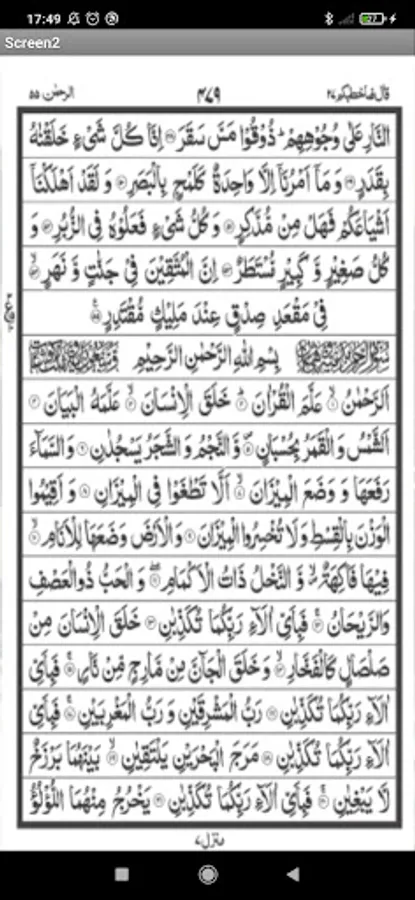 17:49
27
Screen2
قال فما خطبكم ٢٧
٤٧٩
الرحمٰن ٥٥
النَّارِ عَلٰى وُجُوْهِهِمْ ؕ ذُوْقُوْا مَسَّ سَقَرَ ۝ اِنَّا كُلَّ شَىْءٍ خَلَقْنٰهُ
بِقَدَرٍ ۝ وَ مَاۤ اَمْرُنَاۤ اِلَّا وَاحِدَةٌ كَلَمْحٍۭ بِالْبَصَرِ ۝ وَ لَقَدْ اَهْلَكْنَاۤ
اَشْيَاعَكُمْ فَهَلْ مِنْ مُّدَّكِرٍ ۝ وَ كُلُّ شَىْءٍ فَعَلُوْهُ فِى الزُّبُرِ ۝ وَ
كُلُّ صَغِيْرٍ وَّ كَبِيْرٍ مُّسْتَطَرٌ ۝ اِنَّ الْمُتَّقِيْنَ فِىْ جَنّٰتٍ وَّ نَهَرٍ ۝
فِىْ مَقْعَدِ صِدْقٍ عِنْدَ مَلِيْكٍ مُّقْتَدِرٍ ۝
بِسْمِ اللّٰهِ الرَّحْمٰنِ الرَّحِيْمِ
اَلرَّحْمٰنُ ۝ عَلَّمَ الْقُرْاٰنَ ۝ خَلَقَ الْاِنْسَانَ ۝ عَلَّمَهُ الْبَيَانَ ۝
اَلشَّمْسُ وَ الْقَمَرُ بِحُسْبَانٍ ۝ وَّ النَّجْمُ وَ الشَّجَرُ يَسْجُدٰنِ ۝ وَ السَّمَآءَ
رَفَعَهَا وَ وَضَعَ الْمِيْزَانَ ۝ اَلَّا تَطْغَوْا فِى الْمِيْزَانِ ۝ وَ اَقِيْمُوا
الْوَزْنَ بِالْقِسْطِ وَ لَا تُخْسِرُوا الْمِيْزَانَ ۝ وَ الْاَرْضَ وَضَعَهَا لِلْاَنَامِ ۝
فِيْهَا فَاكِهَةٌ ۪ۙ وَّ النَّخْلُ ذَاتُ الْاَكْمَامِ ۝ وَ الْحَبُّ ذُو الْعَصْفِ
وَ الرَّيْحَانُ ۝ فَبِاَىِّ اٰلَآءِ رَبِّكُمَا تُكَذِّبٰنِ ۝ خَلَقَ الْاِنْسَانَ مِنْ
صَلْصَالٍ كَالْفَخَّارِ ۝ وَ خَلَقَ الْجَآنَّ مِنْ مَّارِجٍ مِّنْ نَّارٍ ۝ فَبِاَىِّ
اٰلَآءِ رَبِّكُمَا تُكَذِّبٰنِ ۝ رَبُّ الْمَشْرِقَيْنِ وَ رَبُّ الْمَغْرِبَيْنِ ۝ فَبِاَىِّ
اٰلَآءِ رَبِّكُمَا تُكَذِّبٰنِ ۝ مَرَجَ الْبَحْرَيْنِ يَلْتَقِيٰنِ ۝ بَيْنَهُمَا بَرْزَخٌ
لَّا يَبْغِيٰنِ ۝ فَبِاَىِّ اٰلَآءِ رَبِّكُمَا تُكَذِّبٰنِ ۝ يَخْرُجُ مِنْهُمَا اللُّؤْلُؤُ
منزل ٧